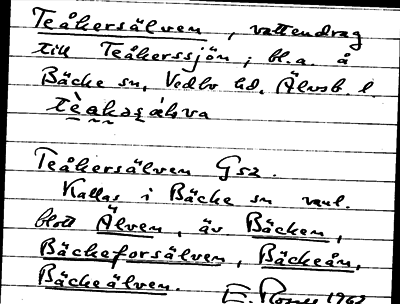 Teåkersälven, vattendrag
till Teåkerssjön, bl.a. å
Bäcke sn, Vedbo hd, Älvsb. l.
Teåkersälven Gsz.
Kallas i Bäcke sn vanl.
blott Älven, äv. Bäcken,
Bäckeforsälven, Bäckeån,
Bäckeälven.
E. 1962